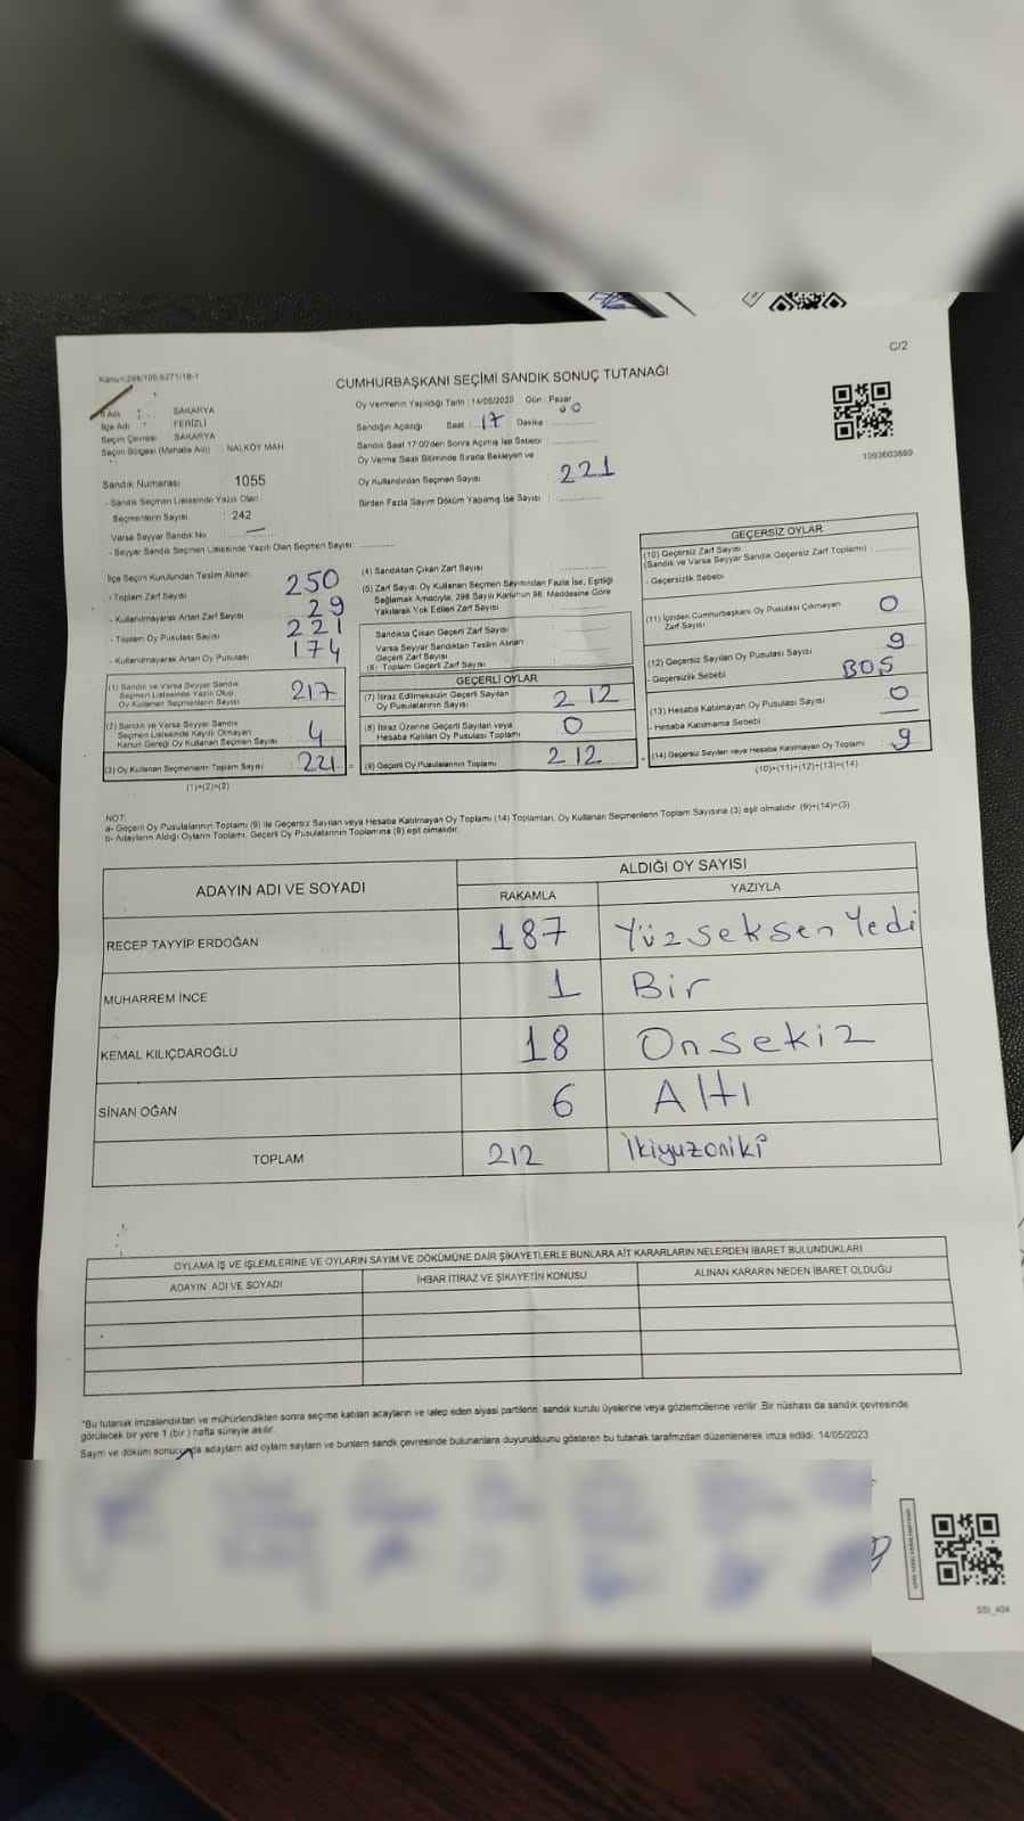 C/2
CUMHURBAŞKANI SEÇİMİ SANDIK SONUÇ TUTANAĞI
İl Adı : SAKARYA
İlçe Adı : FERİZLİ
Seçim Çevresi : SAKARYA
Seçim Bölgesi (Mahalle Adı) : NALKÖY MAH
Sandık Numarası 1055
- Sandık Seçmen Listesinde Yazılı Olan
Seçmenlerin Sayısı : 242
Varsa Seyyar Sandık No
- Seyyar Sandık Seçmen Listesinde Yazılı Olan Seçmen Sayısı
Oy Vermenin Yapıldığı Tarih : 14/05/2023 Gün : Pazar
Sandığın Açıldığı Saat : 17 Dakika : 00
Sandık Saat 17:00'den Sonra Açılmış İse Sebebi
Oy Verme Saati Bitiminde Sırada Bekleyen ve
Oy Kullandırılan Seçmen Sayısı : 221
Birden Fazla Sayım Döküm Yapılmış İse Sayısı :
1093603889
İlçe Seçim Kurulundan Teslim Alınan
- Toplam Zarf Sayısı 250
- Kullanılmayarak Artan Zarf Sayısı 29
- Toplam Oy Pusulası Sayısı 221
- Kullanılmayarak Artan Oy Pusulası 174
(1) Sandık ve Varsa Seyyar Sandık
Seçmen Listesinde Yazılı Olup,
Oy Kullanan Seçmenlerin Sayısı 217
(2) Sandık ve Varsa Seyyar Sandık
Seçmen Listesinde Kayıtlı Olmayan
Kanun Gereği Oy Kullanan Seçmen Sayısı 4
(3) Oy Kullanan Seçmenlerin Toplam Sayısı 221
(1)+(2)=(3)
(4) Sandıktan Çıkan Zarf Sayısı
(5) Zarf Sayısı Oy Kullanan Seçmen Sayısından Fazla İse, Eşitliği
Sağlamak Amacıyla, 298 Sayılı Kanunun 98. Maddesine Göre
Yakılarak Yok Edilen Zarf Sayısı
Sandıkta Çıkan Geçerli Zarf Sayısı
Varsa Seyyar Sandıktan Teslim Alınan
Geçerli Zarf Sayısı
(6) Toplam Geçerli Zarf Sayısı
GEÇERLİ OYLAR
(7) İtiraz Edilmeksizin Geçerli Sayılan
Oy Pusulalarının Sayısı 212
(8) İtiraz Üzerine Geçerli Sayılan veya
Hesaba Katılan Oy Pusulası Toplamı 0
(9) Geçerli Oy Pusulalarının Toplamı 212
GEÇERSİZ OYLAR
(10) Geçersiz Zarf Sayısı
(Sandık ve Varsa Seyyar Sandık Geçersiz Zarf Toplamı) :
- Geçersizlik Sebebi
(11) İçinden Cumhurbaşkanı Oy Pusulası Çıkmayan
Zarf Sayısı 0
(12) Geçersiz Sayılan Oy Pusulası Sayısı 9
- Geçersizlik Sebebi BOŞ
(13) Hesaba Katılmayan Oy Pusulası Sayısı 0
- Hesaba Katılmama Sebebi
(14) Geçersiz Sayılan veya Hesaba Katılmayan Oy Toplamı 9
(10)+(11)+(12)+(13)=(14)
NOT:
a- Geçerli Oy Pusulalarının Toplamı (9) ile Geçersiz Sayılan veya Hesaba Katılmayan Oy Toplamı (14) Toplamları, Oy Kullanan Seçmenlerin Toplam Sayısına (3) eşit olmalıdır. (9)+(14)=(3)
b- Adayların Aldığı Oyların Toplamı, Geçerli Oy Pusulalarının Toplamına (9) eşit olmalıdır.
ADAYIN ADI VE SOYADI
ALDIĞI OY SAYISI
RAKAMLA YAZIYLA
RECEP TAYYİP ERDOĞAN 187 Yüzseksen Yedi
MUHARREM İNCE 1 Bir
KEMAL KILIÇDAROĞLU 18 Onsekiz
SİNAN OĞAN 6 Altı
TOPLAM 212 İkiyuzoniki
OYLAMA İŞ VE İŞLEMLERİNE VE OYLARIN SAYIM VE DÖKÜMÜNE DAİR ŞİKAYETLERLE BUNLARA AİT KARARLARIN NELERDEN İBARET BULUNDUKLARI
ADAYIN ADI VE SOYADI İHBAR İTİRAZ VE ŞİKAYETİN KONUSU ALINAN KARARIN NEDEN İBARET OLDUĞU
*Bu tutanak imzalandıktan ve mühürlendikten sonra seçime katılan adayların ve talep eden siyasi partilerin, sandık kurulu üyelerine veya gözlemcilerine verilir. Bir nüshası da sandık çevresinde
görülecek bir yere 1 (bir) hafta süreyle asılır.
Sayım ve döküm sonucunda adayların aldığı oyların sayılarını ve bunların sandık çevresinde bulunanlara duyurulduğunu gösteren bu tutanak tarafımızdan düzenlenerek imza edildi. 14/05/2023